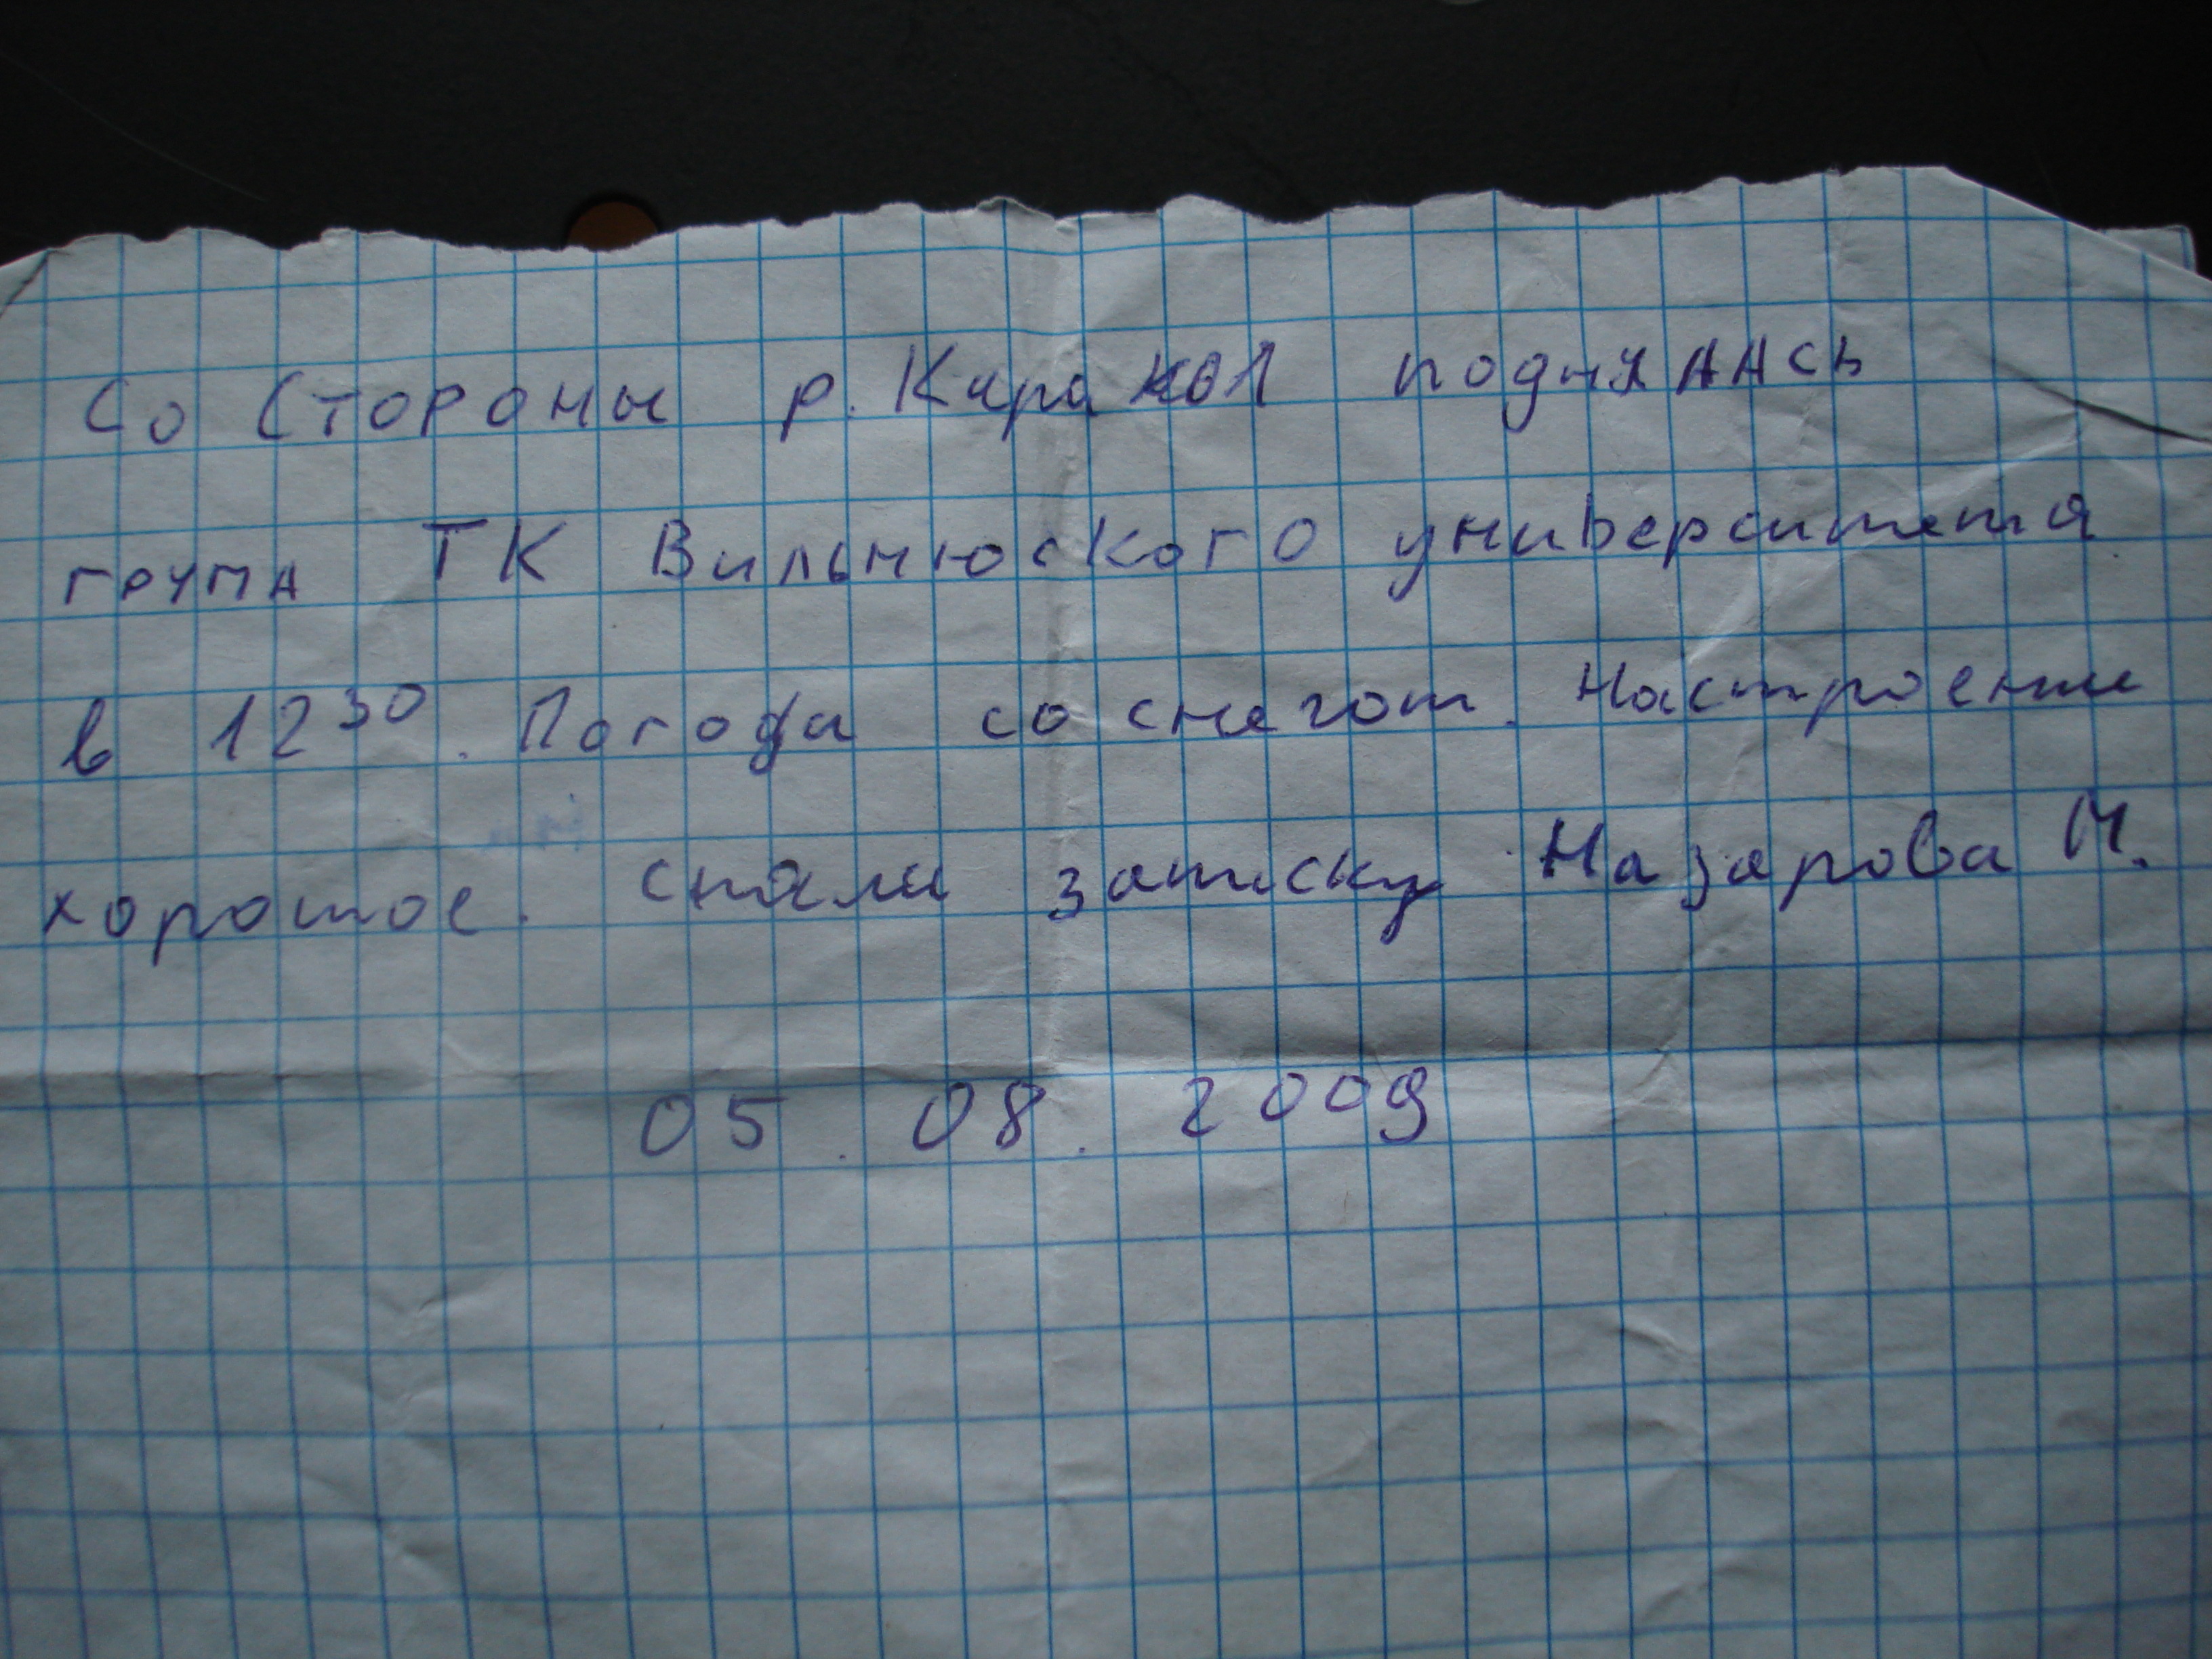 Со Стороны р. Каракол поднялАСЬ
група ТК Вильнюского университета
в 12³⁰. Погода со снегом. Настроение
хорошое. Сняли записку Назарова М.
05. 08. 2009